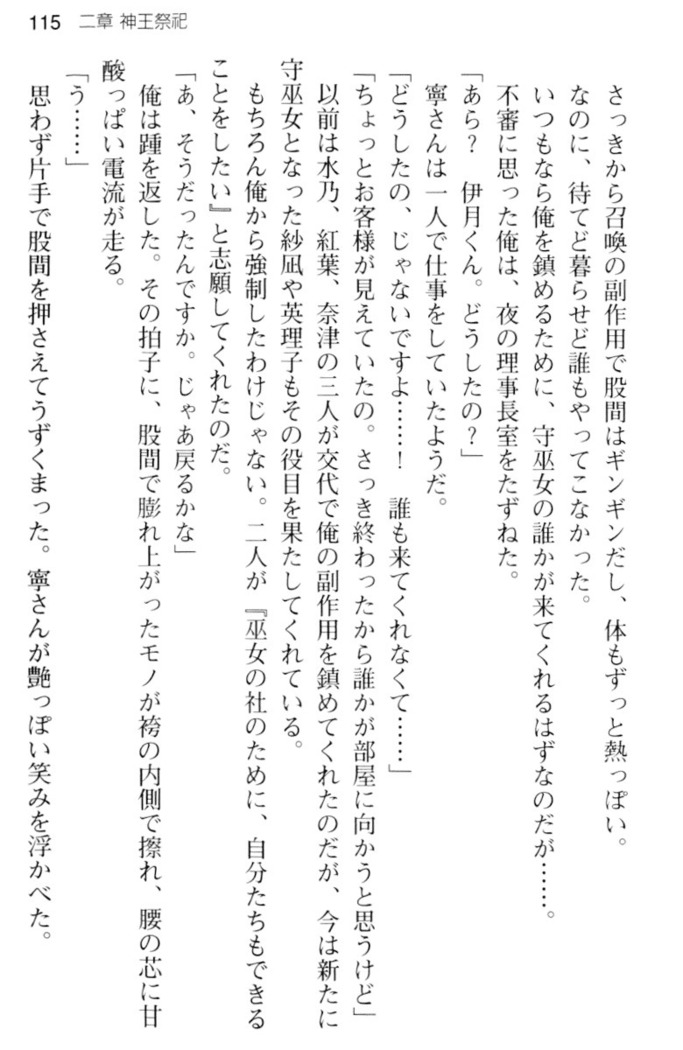 115 二章 神王祭祀
さっきから召喚の副作用で股間はギンギンだし、体もずっと熱っぽい。
なのに、待てど暮らせど誰もやってこなかった。
いつもなら俺を鎮めるために、守巫女の誰かが来てくれるはずなのだが……。
不審に思った俺は、夜の理事長室をたずねた。
「あら？　伊月くん。どうしたの？」
寧さんは一人で仕事をしていたようだ。
「どうしたの、じゃないですよ……！　誰も来てくれなくて……」
「ちょっとお客様が見えていたの。さっき終わったから誰かが部屋に向かうと思うけど」
以前は水乃、紅葉、奈津の三人が交代で俺の副作用を鎮めてくれたのだが、今は新たに
守巫女となった紗凪や英理子もその役目を果たしてくれている。
もちろん俺から強制したわけじゃない。二人が『巫女の社のために、自分たちもできる
ことをしたい』と志願してくれたのだ。
「あ、そうだったんですか。じゃあ戻るかな」
俺は踵を返した。その拍子に、股間で膨れ上がったモノが袴の内側で擦れ、腰の芯に甘
酸っぱい電流が走る。
「う……」
思わず片手で股間を押さえてうずくまった。寧さんが艶っぽい笑みを浮かべた。